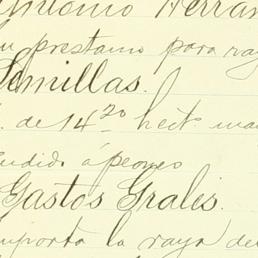 Antonio Herran
su prestamo para ray
Semillas.
. de 14 20 hect ma
endido á peones
Gastos Grales.
mporta la raya de